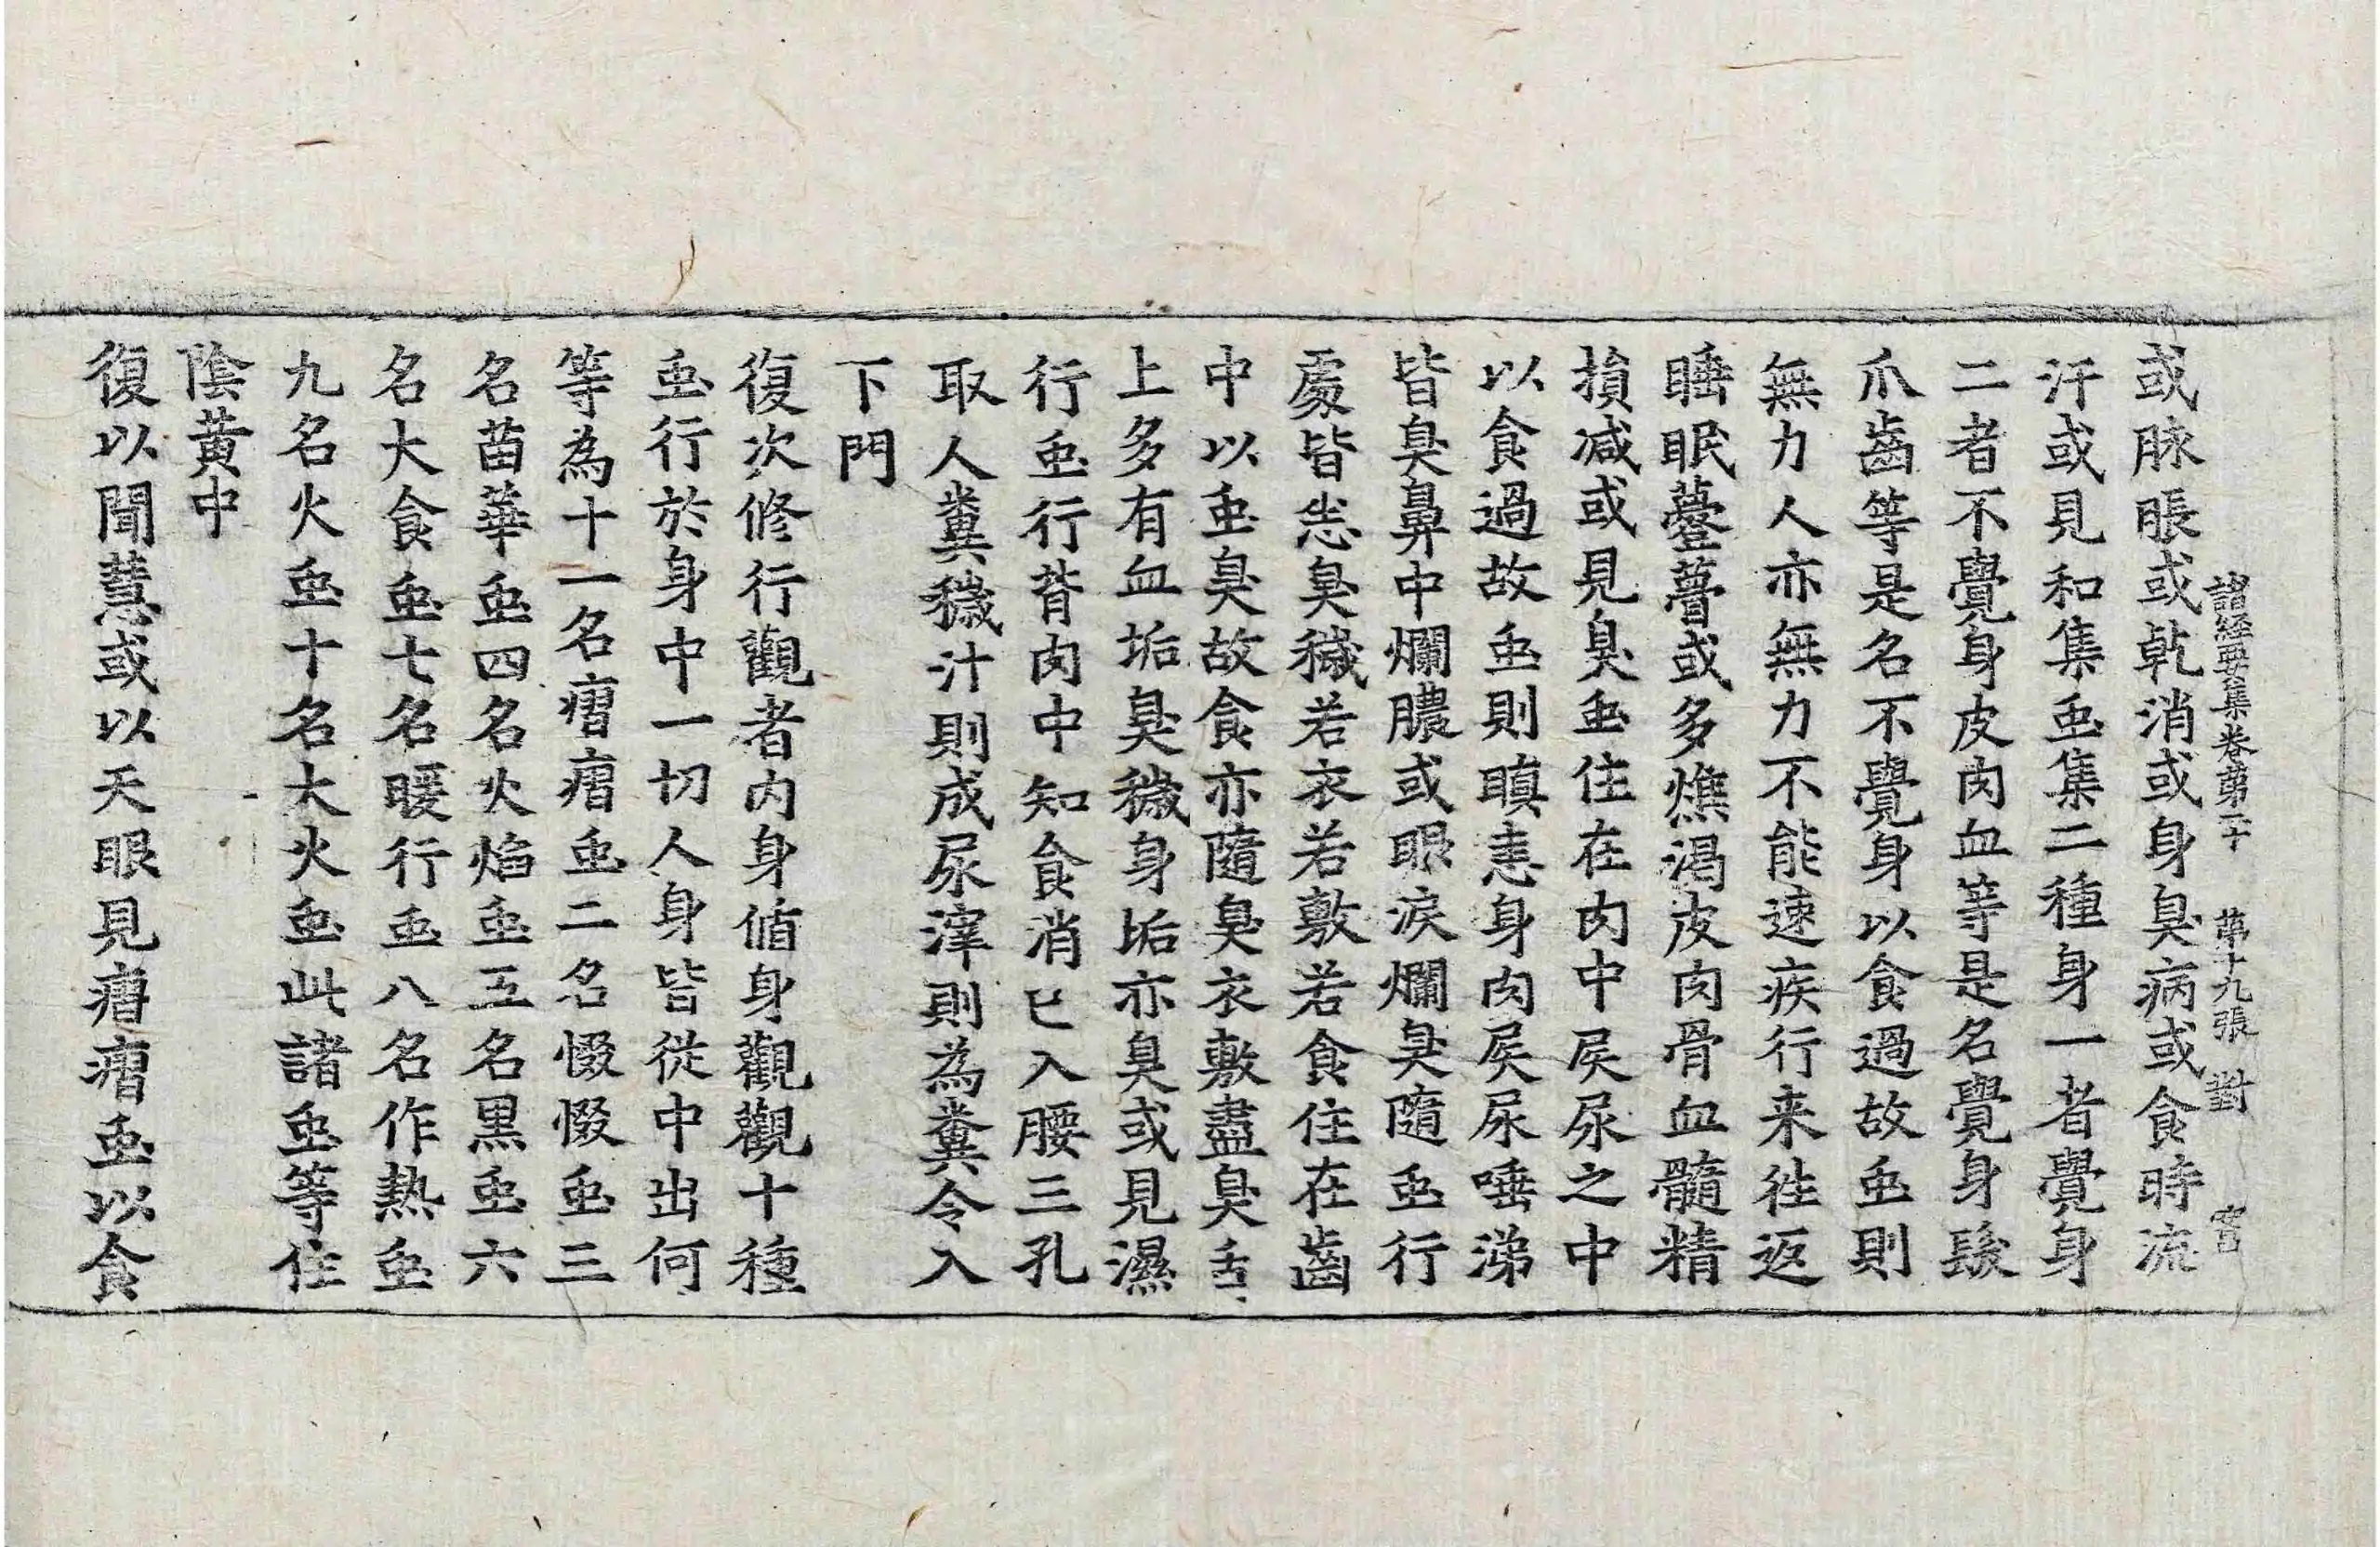 諸経要集卷第二十 第十九張 對
或脉脹或乾消或身臭病或食時流
汗或見和集䖝集二種身一者覺身
二者不覺身皮肉血等是名覺身髮
爪齒等是名不覺身以食過故䖝則
無力人亦無力不能速疾行来往返
睡眠薹瞢或多燋渴皮肉骨血髓精
損减或見臭䖝住在肉中屎尿之中
以食過故䖝則瞋恚身肉屎尿唾涕
皆臭鼻中爛膿或眼淚爛臭隨䖝行
處皆恙臭穢若衣若敷若食住在齒
中以䖝臭故食亦隨臭衣敷盡臭舌
上多有血垢臭穢身垢亦臭或見濕
行䖝行背肉中知食消已入腰三孔
取人糞穢汁則成尿滓則為糞令入
下門
復次修行觀者内身循身觀觀十種
䖝行於身中一切人身皆從中出何
等為十一名㿧㿧䖝二名惙惙䖝三
名苗華䖝四名火焰䖝五名黒䖝六
名大食䖝七名暖行䖝八名作熱䖝
九名火䖝十名大火䖝此諸䖝等住
陰黄中
復以聞慧或以天眼見㿧㿧䖝以食